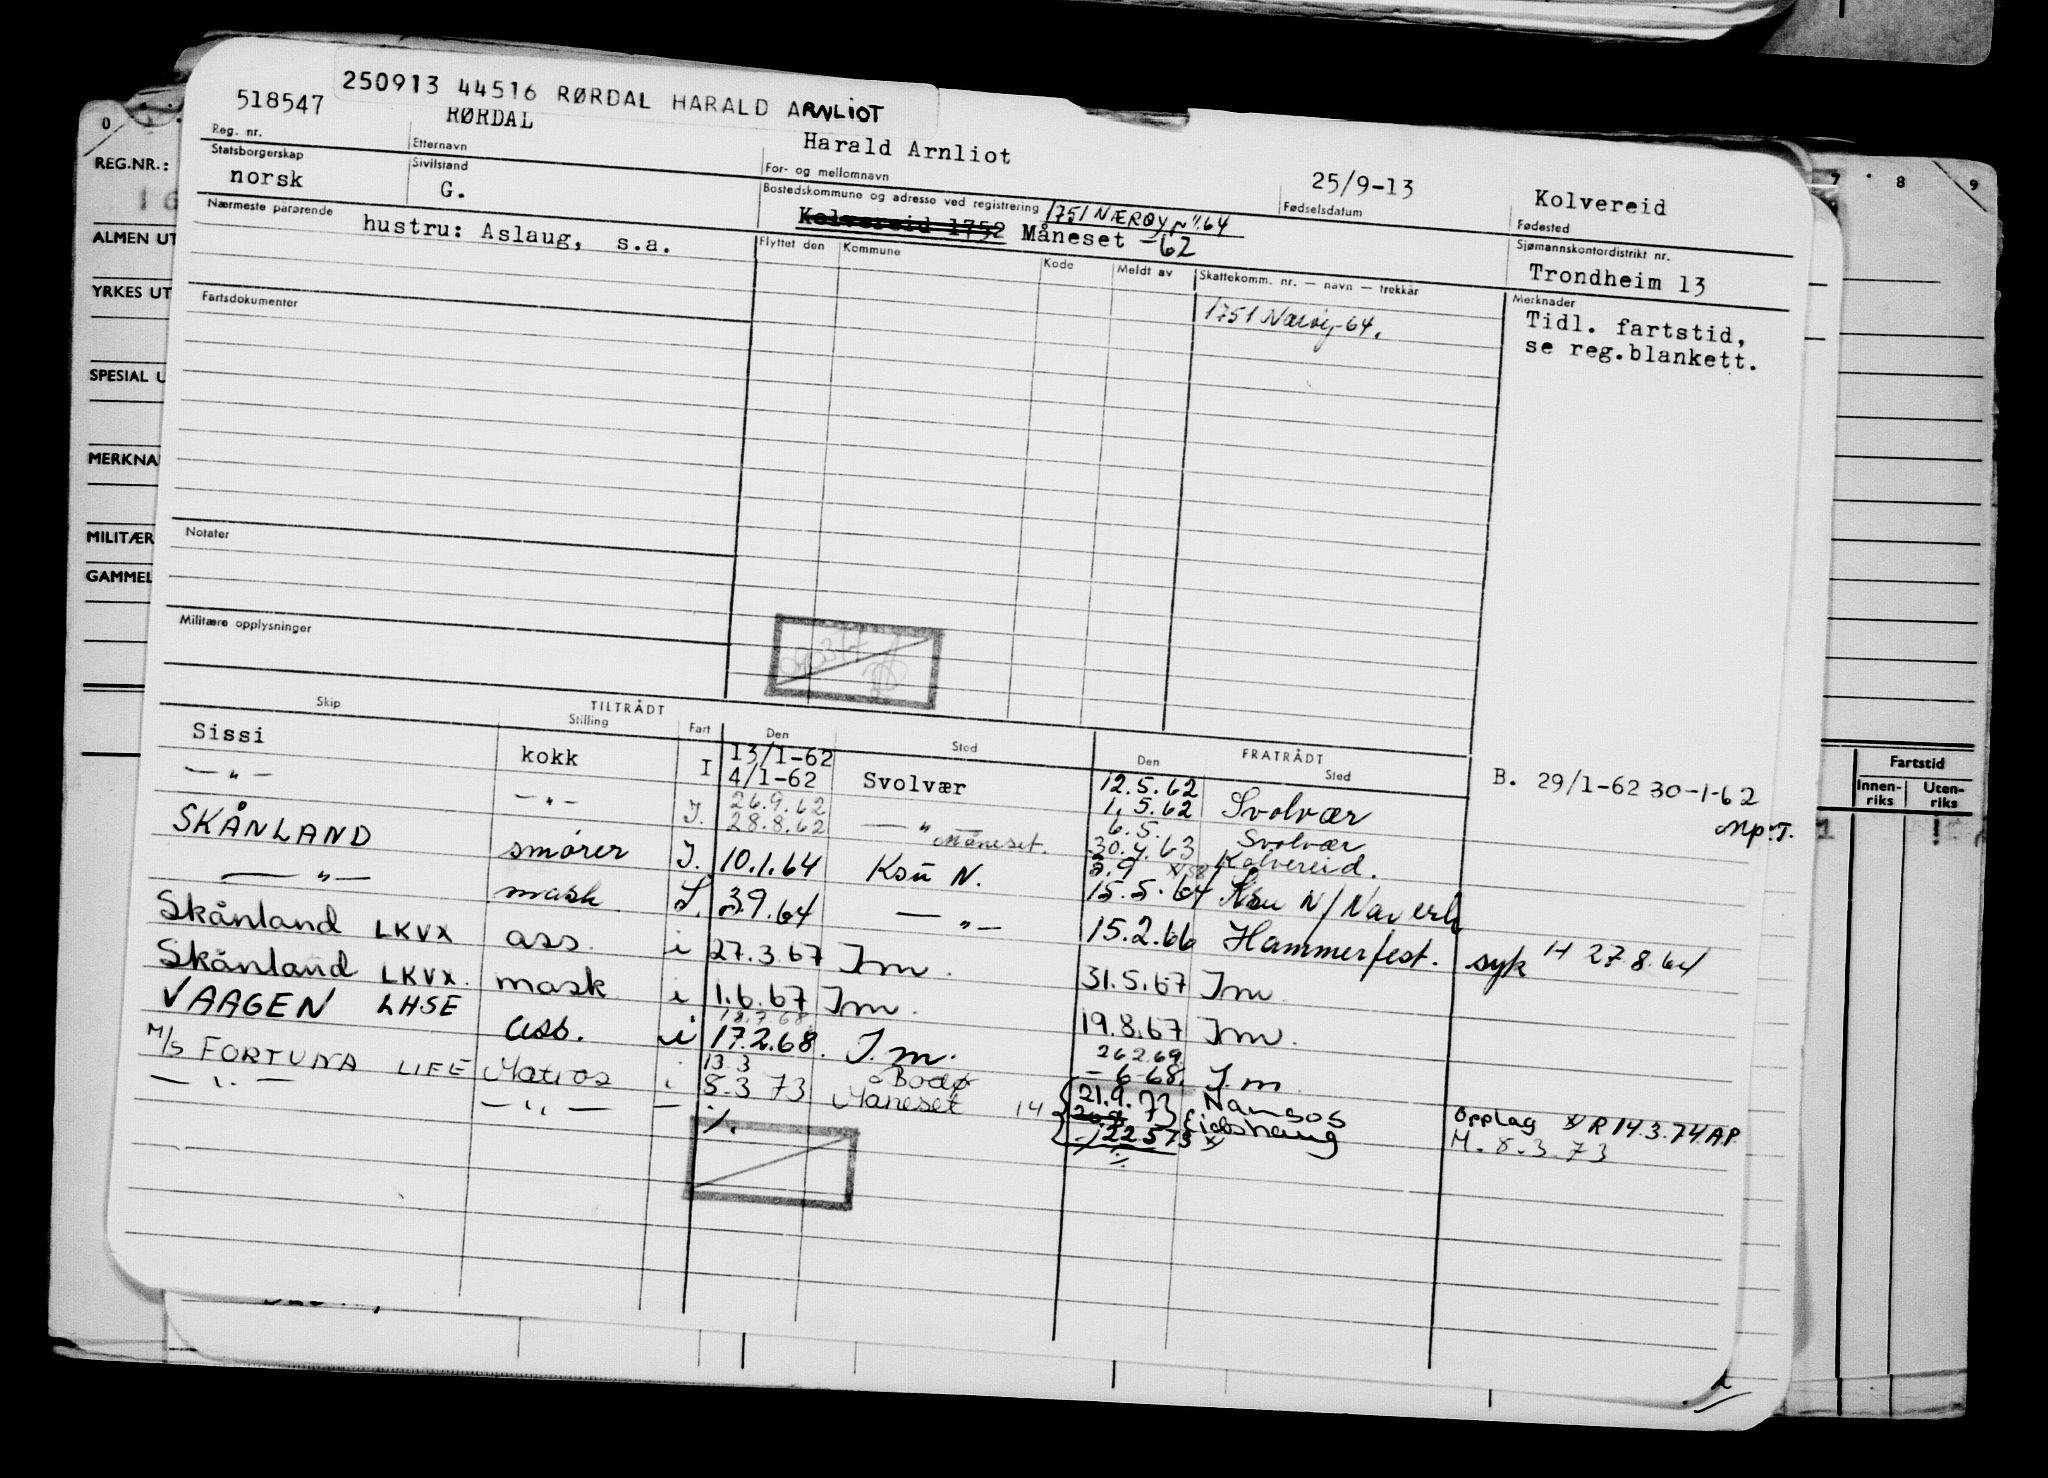 250913 44516 RØRDAL HARALD ARNLIOT
518547 RØRDAL Harald Arnliot 25/9-13 Kolvereid
Reg. nr. Etternavn For- og mellomnavn Fødselsdatum Fødested
Statsborgerskap Sivilstand Bostedskommune og adresse ved registrering Sjømannskontordistrikt nr.
norsk G. Kolvereid 1752 Måneset -62 1751 NÆRØY 64 Trondheim 13
Nærmeste pårørende Flyttet den Kommune Kode Meldt av Skattekomm. nr. — navn — trekkår Merknader
hustru: Aslaug, s.a. 1751 Nærøy-64. Tidl. fartstid,
se reg.blankett.
Fartsdokumenter
Notater
Militære opplysninger
Skip TILTRÅDT Stilling Fart Den Sted FRATRÅDT Den Sted
Sissi kokk I 13/1-62 4/1-62 Svolvær 12.5.62 1.5.62 Svolvær B. 29/1-62 30-1-62
— " — — " — I. 26.9.62 28.8.62 — " — Måneset. 6.5. 30.4.63 Svolvær Kolvereid. Mp.T.
SKÅNLAND smører I. 10.1.64 Ksu N. 3.9 15.5.64 Ksu N/
— " — mask I. 3.9.64 — " — 15.2.66 Hammerfest. syk H 27.8.64
Skånland LKVX ass. i 27.3.67 Im. 31.5.67 Im
Skånland LKVX. mask i 1.6.67 Im. 19.8.67 Im.
VAAGEN LHSE ass. i 18.7.68 17.2.68. I.m. 26.2.69 - 6-68. I.m.
M/S FORTUNA LIFE Matros i 13.3 8.3 73 Bodø Måneset 14 21.9.73 Namsos Opplag x/ R 14.3.74 AP.
— " — — " — — % 22.5 73 x Eidshaug M. 8.3.73
REG.NR.:
ALMEN UT
YRKES UT
SPESIAL U
MERKNA
MILITÆR
GAMMEL
0
7 8 9
Fartstid
Innen-riks Uten-riks